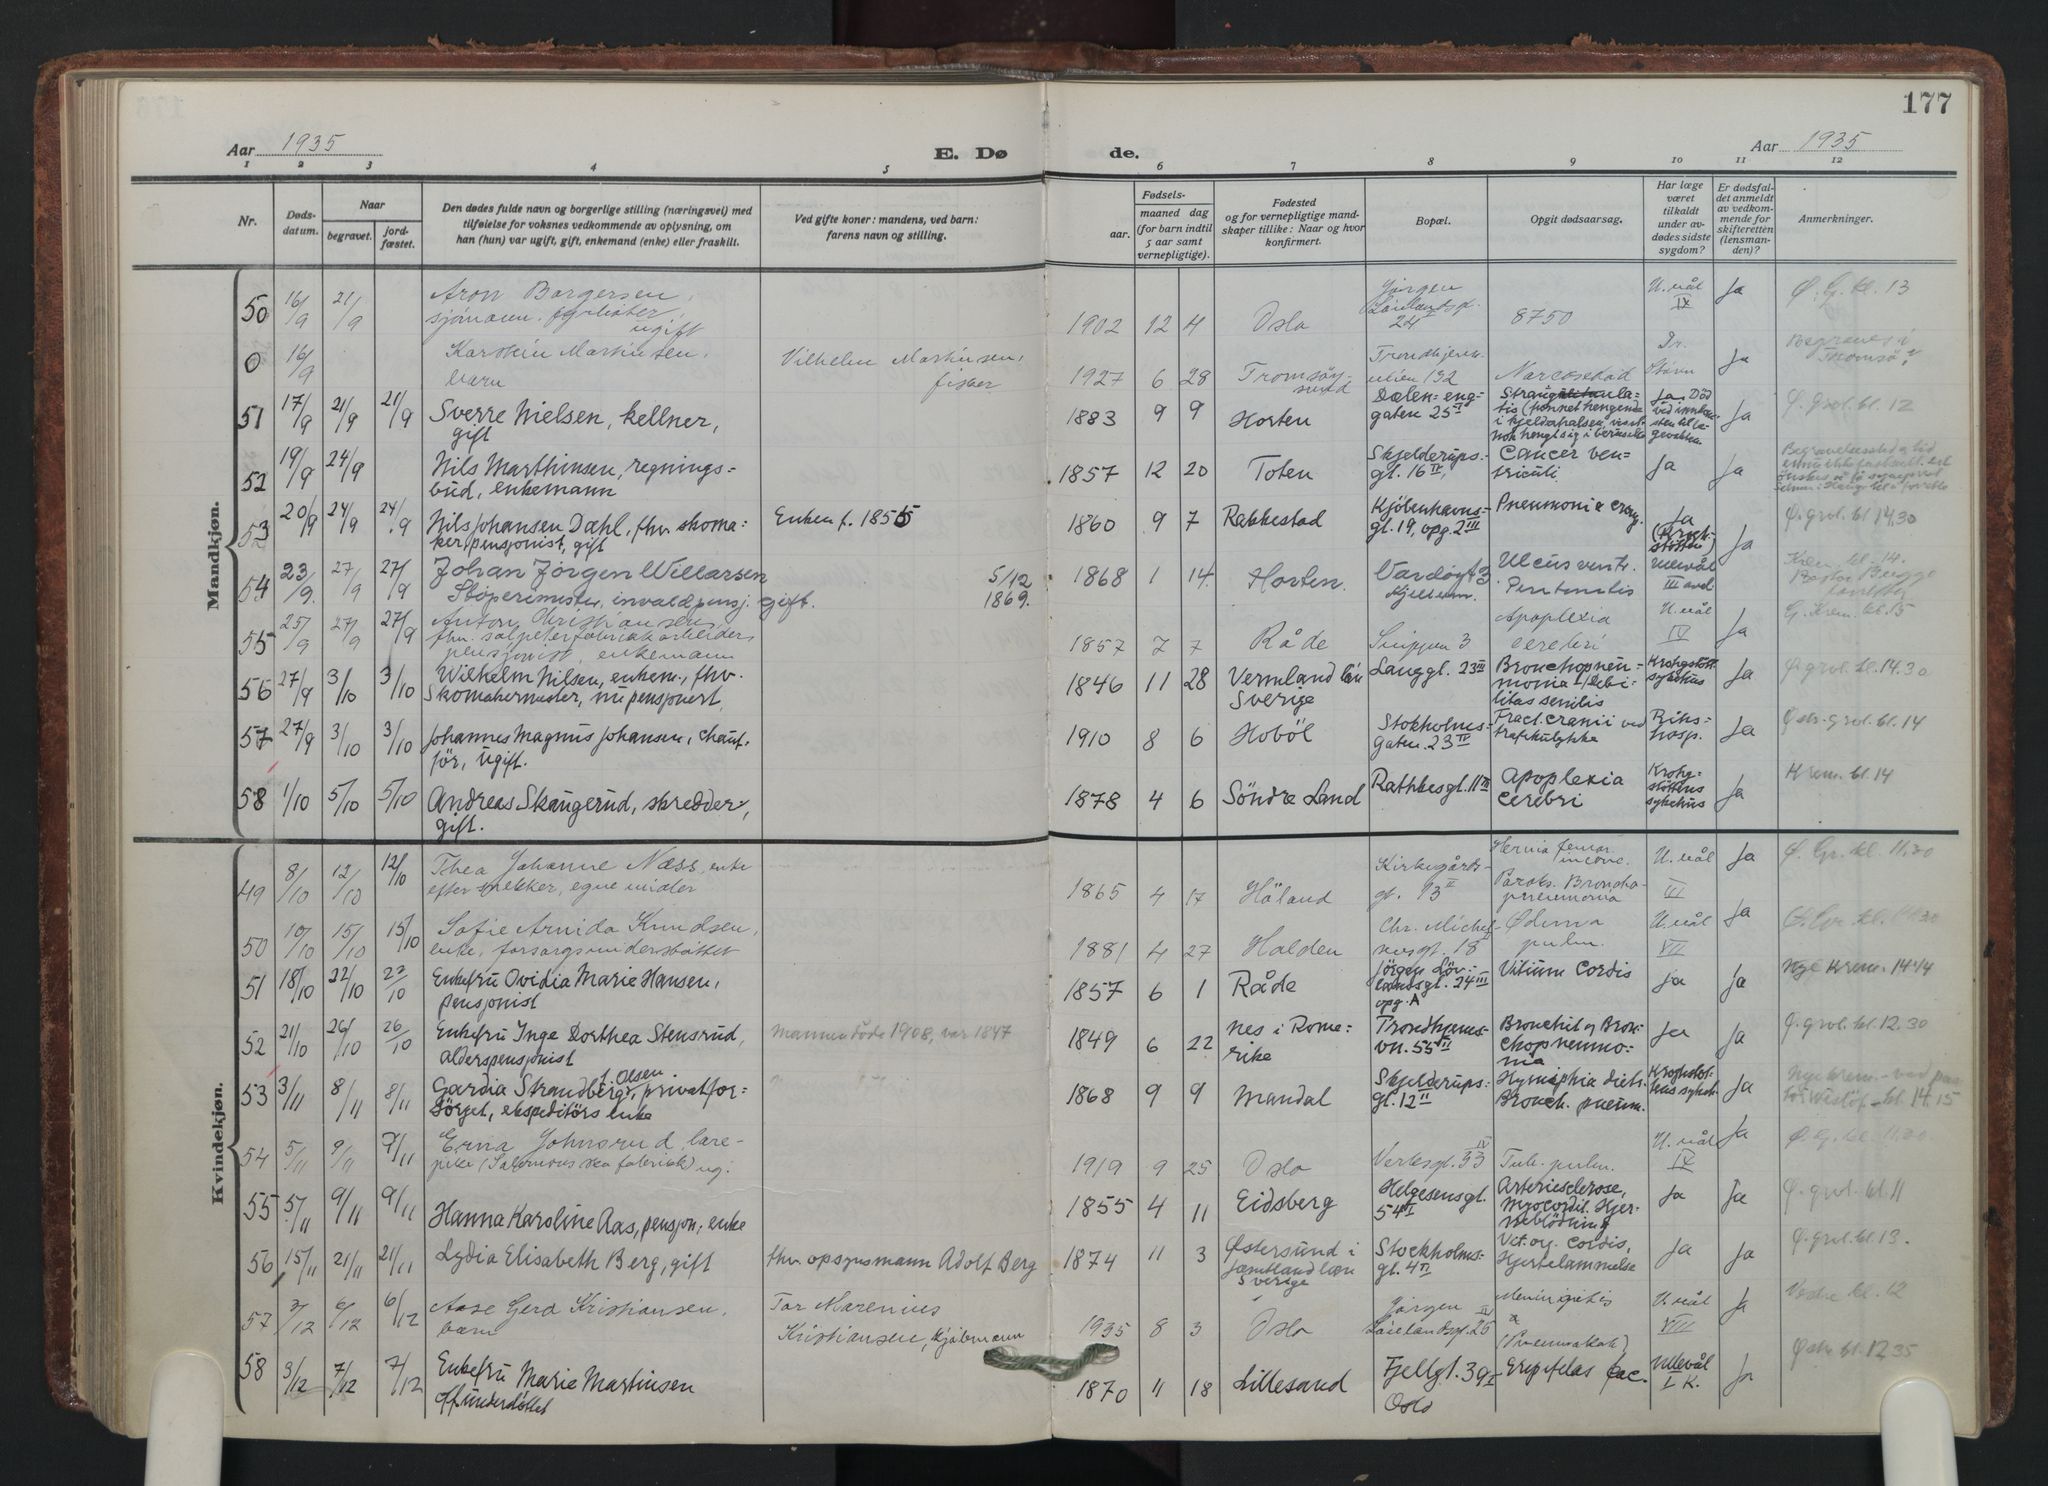 177
Aar 1935
E. Dø
de.
Aar 1935
1 2 3 4 5 6 7 8 9 10 11 12
Nr.
Døds-
datum.
Naar
begravet.
jord-
fæstet.
Den dødes fulde navn og borgerlige stilling (næringsvei) med
tilføielse for voksnes vedkommende av oplysning, om
han (hun) var ugift, gift, enkemand (enke) eller fraskilt.
Ved gifte koner: mandens, ved barn:
farens navn og stilling.
Fødsels-
aar.
maaned dag
(for barn indtil
5 aar samt
vernepligtige).
Fødested
og for vernepligtige mand-
skaper tillike: Naar og hvor
konfirmert.
Bopæl.
Opgit dødsaarsag.
Har læge
været
tilkaldt
under av-
dødes sidste
sygdom?
Er dødsfal-
det anmeldt
av vedkom-
mende for
skifteretten
(lensman-
den)?
Anmerkninger.
Mandkjøn.
50 16/9 21/9 Aron Borgersen,
sjømann. ugift
1902 12 4 Oslo Jørgen Løvelandsgt. 24 8750 U.vål IX Ja Ø. G. kl. 13
0 16/9 Karstein Martinsen, barn Vilhelm Martinsen, fisker
1927 6 28 Tromsøysund 132 Narcosedød Dr. Ja Begraves i Tromsø
51 17/9 21/9 21/9 Sverre Nielsen, kellner,
gift
1883 9 9 Horten Dælen-eng-
gaten 25 II Ja. Død Ja Ø. grvl. kl. 12
52 19/9 24/9 Nils Marthinsen, regnings-
bud, enkemann
1857 12 20 Toten Skjelderups-
gt. 16 II Cancer ven-
triculi Ja Ja
53 20/9 24/9 24/9 Nils Johansen Dæhl, fhv. skoma-
ker, pensjonist, gift Enken f. 1855
1860 9 7 Rakkestad Kjøbenhavns-
gt. 19, opg. 2 III Pneumonia croup. Ja (Krohg-
støtten) Ja Ø. grvl. kl. 14.30
54 23/9. 27/9 27/9 Johan Jørgen Willarsen
Støperimester, invalidpensj. gift. 5/12 1869.
1868 1 14 Horten Vardøgt 3 Ulcus ventr.
Peritonitis Ullevål III avd Krem kl. 14.
55 25/9 27/9 27/9 Anton Christiansen,
fhv. salpeterfabrikarbeider,
pensjonist, enkemann
1857 7 7 Råde Snippen 3 Apoplexia
cerebri U.vål IV Ja G. Krem. kl. 15
56 27/9 3/10 3/10 Wilhelm Nilsen, enkem., fhv.
skomakermester, nu pensjonert.
1846 11 28 Vermland län
Sverige Langgt. 23 III Bronchopneu-
monia /Debi-
litas senilis Krohgstøtt.
sykehus Ja Ø. grvl. kl. 14.30
57 27/9 3/10 3/10 Johannes Magnus Johansen, chauf-
før, ugift.
1910 8 6 Hobøl Stokholms-
gaten. 23 IV Fract. cranii ved
trafikulykke Riks-
hosp. Ja Østr. grvl. kl. 14
58 1/10 5/10 5/10 Andreas Skaugerud, skredder,
gift.
1878 4 6 Söndre Land Rathkesgt. 11 III Apoplexia
cerebri Krohg-
støttens
sykehus Ja Krem. kl. 14
Kvindekjøn.
49 8/10 12/10 12/10 Thea Johanne Næss, enke
efter snekker, egne midler
1865 4 17 Høland Kirkegårds-
gt. 13 II Hernia femor.
incarc.
Broncho-
pneumonia U.vål III Ja Ø. Gr. kl. 11.30
50 10/10 15/10 15/10 Sofie Arnida Knudsen,
enke, forsorgsunderstøttet
1881 4 27 Halden Chr. Michel-
sensgt. 18 Ødema
pulm. U.vål VII Ja
51 18/10 22/10 23/10 Enkefru Ovidia Marie Hansen,
pensjonist
1857 6 1 Råde Jørgen Løv-
landsgt. 24 III
opg. A Vitium Cordis Ja Ja Nye Krem. 14
52 21/10 26/10 26/10 Enkefru Inge Dorthea Stensrud,
alderspensjonist Mannen døde 1908, var 1847
1849 6 22 Nes i Rome-
rike Trondhjems-
vn. 55 II Bronchit og Bron-
chopneumo-
nia Ja Ja Ø. grvl. kl. 12.30
53 3/11 8/11 8/11 Gardia Strandberg f. Olsen, privatfor-
sørget, ekspeditørs enke
1868 9 9 Mandal Skjelderups-
gt. 12 II Bronch. pneum. Krohgstøt-
tens sykeh. Ja Nye krem.
54 5/11 9/11 7/11 Erna Johnsrud, lære-
pike ug.
1919 9 25 Oslo Verksgt. 33 IV Tub. pulm. U.vål IX Ja Ø. G. kl. 11.30
55 5/11 9/11 9/11 Hanna Karoline Aas, pensjon., enke
1855 4 11 Eidsberg Helgesensgt.
54 I Arteriesclerose,
Myocardit. Hjer-
neblødning Ja Ja Ø. grvl. kl. 11
56 15/11 21/11 21/11 Lydia Elisabeth Berg, gift fhv. opsynsmann Adolf Berg
1874 11 3 Østersund i
Jæmtland læn
Sverige Stockholms-
gt. 4 II Vit. org. Cordis,
Hjertelammelse Ja Ja Ø. grvl. kl. 13.
57 3/12 6/12 6/12 Aase Gerd Kristiansen,
barn Tor Marenius
Kristiansen, kjøbmann
1935 8 3 Oslo Jørgen
Løvelandsgt. 26 IV Meningitis U.vål VIII Ja Vestre kl. 12
58 3/12 7/12 7/12 Enkefru Marie Martinsen
off. understøttet
1870 11 18 Lillesand Fjellgt. 39 I
Oslo Erysipelas fac. Ullevål
I K. Ja Østr. kl. 12 35